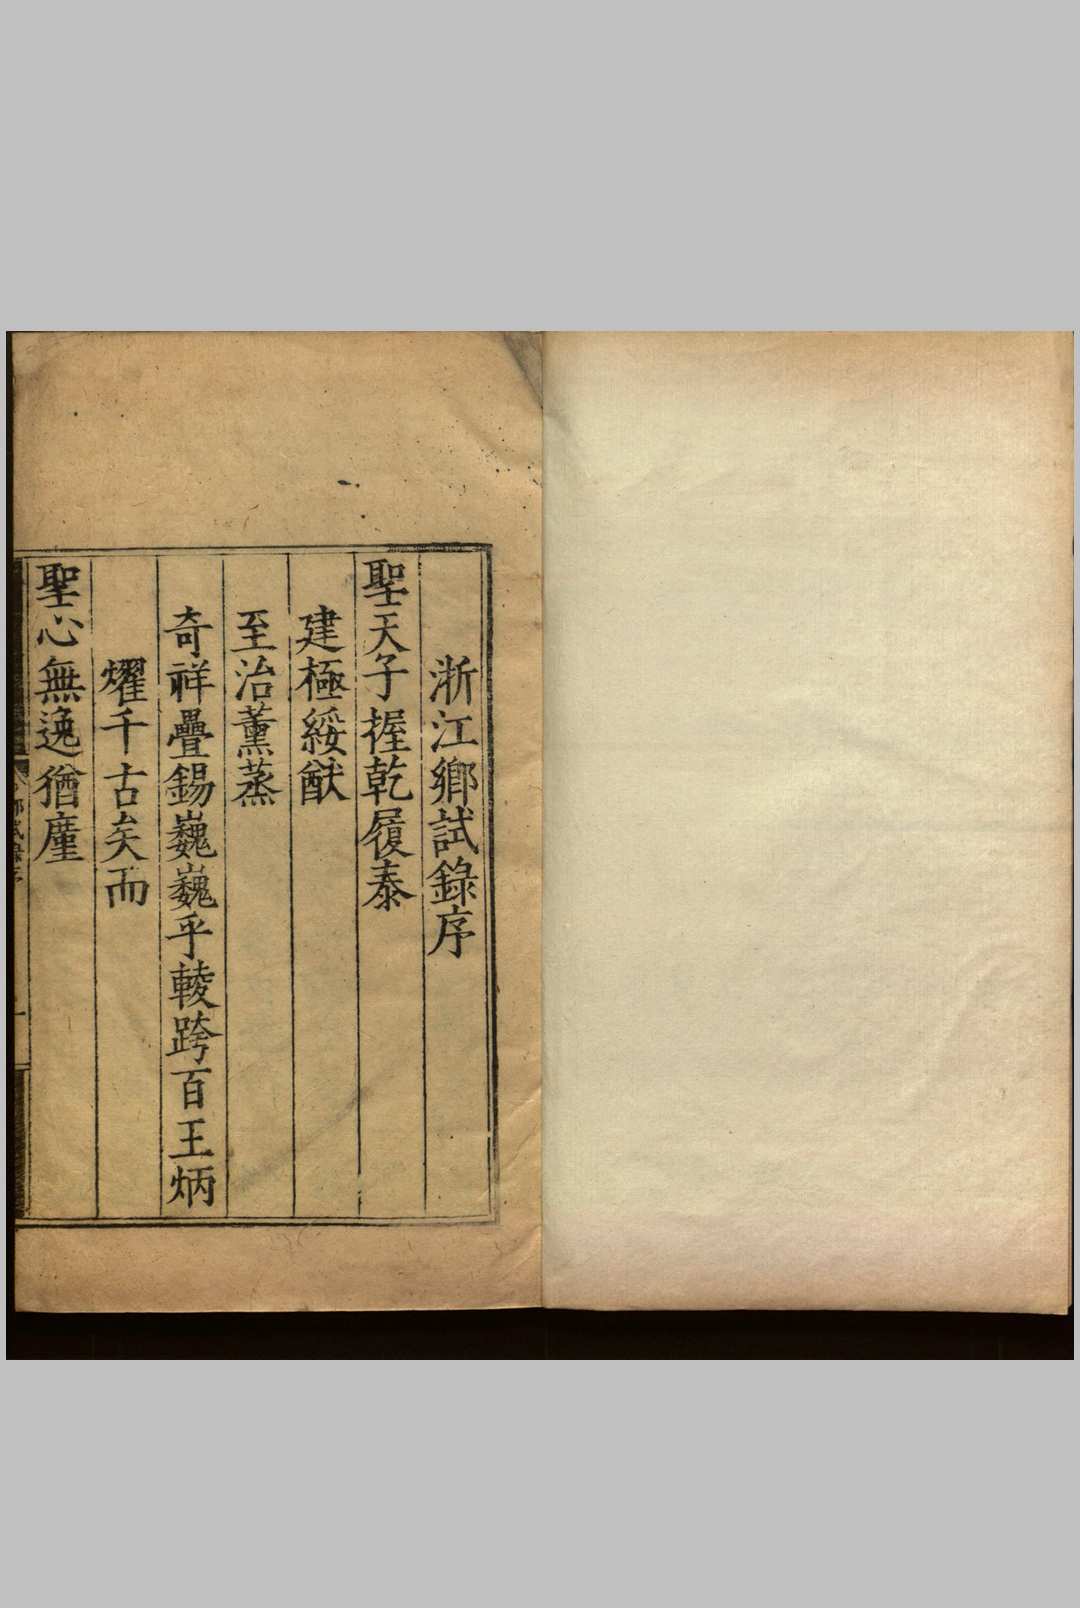 浙江鄉試錄序
聖天子握乾履泰
建極綏猷
至治薰蒸
奇祥疊錫巍巍乎輘跨百王炳
燿千古矣而
聖心無逸猶廑
鄉試錄序